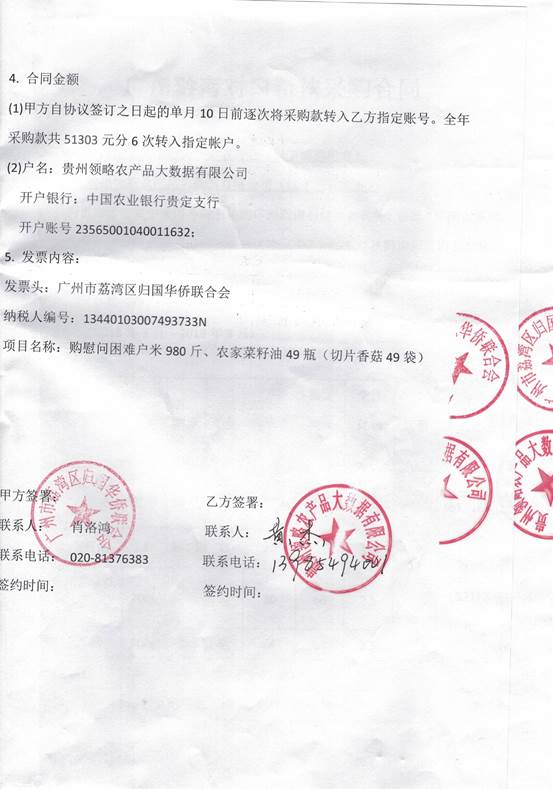 4. 合同金额
(1)甲方自协议签订之日起的单月 10 日前逐次将采购款转入乙方指定账号。全年
采购款共 51303 元分 6 次转入指定帐户。
(2)户名：贵州领略农产品大数据有限公司
开户银行：中国农业银行贵定支行
开户账号 23565001040011632；
5. 发票内容：
发票头：广州市荔湾区归国华侨联合会
纳税人编号：13440103007493733N
项目名称：购慰问困难户米 980 斤、农家菜籽油 49 瓶（切片香菇 49 袋）
华侨联合会
广州市荔湾区归国
据有限公司
产品大数
甲方签署：
联系人： 肖洛鸿
联系电话： 020-81376383
签约时间：
广州市荔湾区归国华侨联合会
乙方签署：
联系人：
联系电话：
签约时间：
农产品大数据有限公司